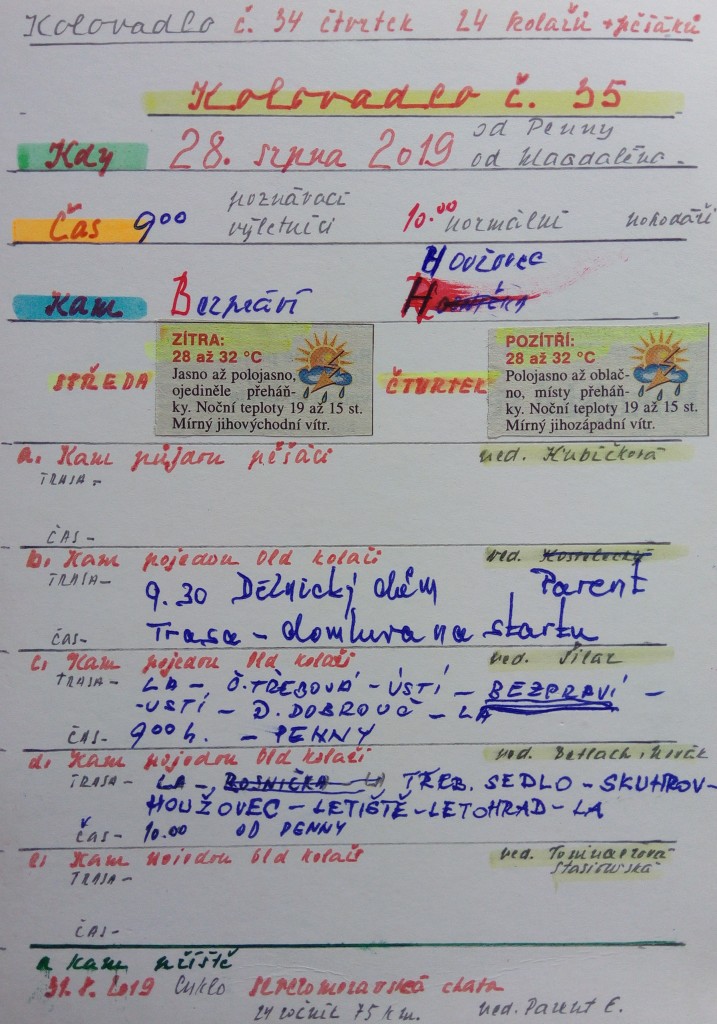 Kolovadlo č. 34 čtvrtek 24 kolařů + pěšáků
Kolovadlo č. 35
Kdy 28. srpna 2019 od Penny
od Magdaléna.
Čas 9⁰⁰ poznávací výletníci 10.⁰⁰ normální pohodáři
Houžovec
Kam Bezpráví
STŘEDA
ZÍTRA:
28 až 32 °C
Jasno až polojasno,
ojediněle přeháň-
ky. Noční teploty 19 až 15 st.
Mírný jihovýchodní vítr.
ČTVRTEK
POZÍTŘÍ:
28 až 32 °C
Polojasno až oblač-
no, místy přeháň-
ky. Noční teploty 19 až 15 st.
Mírný jihozápadní vítr.
a. Kam půjdou pěšáci ved. Kubíčková
TRASA -
ČAS -
b. Kam pojedou Old kolaři ved. Kostelecký
TRASA - 9.30 Dělnický dům Parent
ČAS - Trasa - domluva na startu
c. Kam pojedou Old kolaři ved. Šilar
TRASA - LA - Č. TŘEBOVÁ - ÚSTÍ - BEZPRAVÍ -
- USTÍ - D. DOBROUČ - LA
ČAS - 9⁰⁰ h. - PENNY
d. Kam pojedou Old kolaři ved. Betlach, Novák
TRASA - LA - ROSNIČKA - LA, TŘEB. SEDLO - SKUHROV -
HOUŽOVEC - LETIŠTĚ - LETOHRAD - LA
ČAS - 10.00 OD PENNY
e. Kam nojedou Old kolaři ved.
Stasiowská
TRASA -
ČAS -
a kam příště
31. 8. 2019 Cyklo Severomoravská chata
24 ročník 75 km. ved. Parent E.